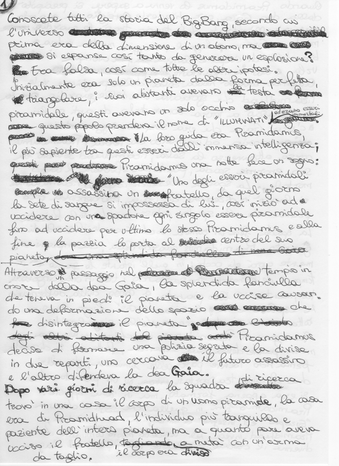 1
Conoscete tutti la storia del Big Bang, secondo cui
l'universo
prima era della dimensione di un atomo, ma
si espanse così tanto da generare un esplosione?
È tra falsa, così come tutte le altre ipotesi.
Inizialmente era solo un pianeta dalla forma perfetta
triangolare, i suoi abitanti avevano la testa
piramidale, questi avevano un solo occhio
questo popolo prendeva il nome di "ILLUMINATI"
la loro guida era Piramidamus,
il più sapiente tra questi esseri dall'immensa intelligenza;
Piramidamus una notte fece un sogno:
"Uno degli esseri piramidali
assassina un fratello, da quel giorno
la sete di sangue si impossessa di lui, così iniziò ad
uccidere con una spadona ogni singolo essere piramidale
fino ad uccidere per ultimo lo stesso Piramidamus, e alla
fine la pazzia lo porta al centro del suo
pianeta,
Attraverso un passaggio nel tempio in
onore della dea Gaia, la splendida fanciulla
che teneva in piedi il pianeta e la uccise causan-
do una deformazione dello spazio che
disintegrò il pianeta".
Piramidamus
decise di formare una polizia segreta e la divise
in due reparti, uno cercava il futuro assassino
e l'altro difendeva la dea Gaia.
Dopo vari giorni di ricerca la squadra di ricerca
trovò in una casa il corpo di un uomo piramide, la casa
era di Piramidhuad, l'individuo più tranquillo e
paziente dell'intero pianeta, ma a quanto pare aveva
ucciso il fratello, tagliandolo a metà con un'arma
da taglio. il corpo era diviso